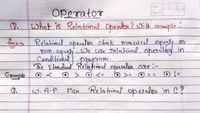 Operator
Q. What is Relational Operator? With example:
Ans → Relational operator check numerical equally or
non-equally. We use Relational operator in
Conditional program.
The standard Relational operator are :-
Example ⊙ < ⊙ > ⊙ <= ⊙ >= ⊙ == ⊙ !=
Q. W.A.P For Relational operator in C?